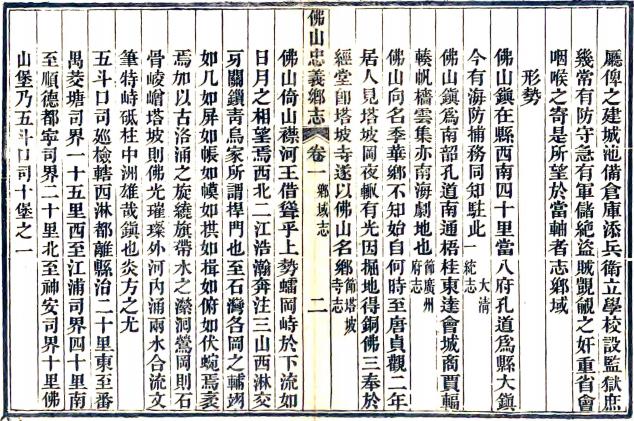 廳俾之建城池備倉庫添兵衛立學校設監獄庶
幾常有防守急有軍儲絕盜賊覬覦之奸重省會
咽喉之寄是所望於當軸者志鄉域
形勢
佛山鎮在縣西南四十里當八府孔道為縣大鎮
今有海防捕務同知駐此大清一統志
佛山鎮為南韶孔道南通梧桂東達會城商賈輻
輳帆檣雲集亦南海劇地也節廣州府志
佛山向名季華鄉不知始自何時至唐貞觀二年
居人見塔坡岡夜輒有光因掘地得銅佛三奉於
經堂即塔坡寺遂以佛山名鄉節塔坡寺志
佛山忠義鄉志 卷一 鄉域志 二
佛山倚山襟河王借聳乎上勢蠕岡峙於下流如
日月之相望焉西北二江浩瀚奔注三山西淋交
牙關鎖青鳥家所謂捍門也至石灣各岡之翊
如几如屏如帳如幙如拱如揖如俯如伏蜿焉袤
焉加以古洛涌之旋繞旂帶水之瀠洄鶯岡則石
骨崚嶒塔坡則佛光璀璨外河內涌兩水合流文
筆特峙砥柱中洲雄哉鎮也炎方之尤
五斗口司巡檢轄西淋都離縣治二十里東至番
禺茭塘司界一十五里西至江浦司界四十里南
至順德都寧司界二十里北至神安司界十里佛
山堡乃五斗口司十堡之一